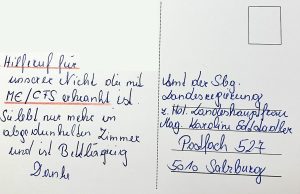 Hilferuf für
unserer Nicht die mit
ME/CFS erkrankt ist.
Sie lebt nur mehr im
abgedunkelten Zimmer
und ist Bettlägrig
Danke
Amt der Sbg.
Landesregierung
z. Hd. Landeshauptfrau
Mag. Karoline Edtstadler
Postfach 527
5010 Salzburg